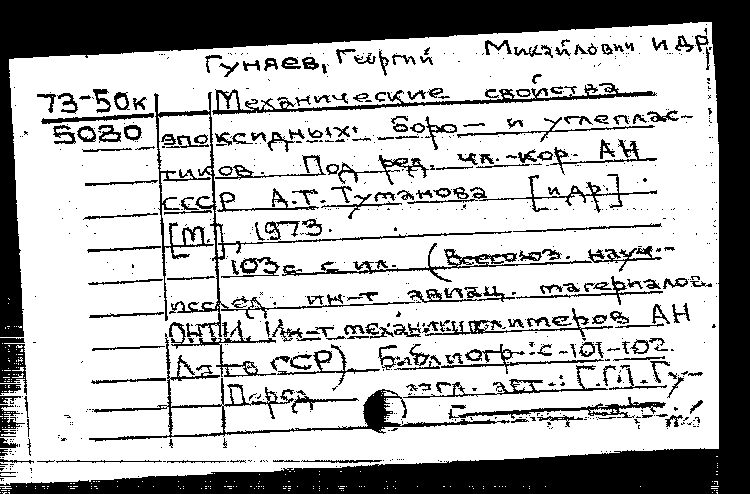 Гуняев, Георгий Михайлович и др.
73-50к Механические свойства
5020 эпоксидных боро- и углеплас-
тиков. Под ред. чл.-кор. АН
СССР А.Т. Туманова [и др.]
[М.], 1973.
103 с. с ил. (Всесоюз. науч.-
исслед. ин-т авиац. материалов.
ОНТИ. Ин-т механики полимеров АН
Латв ССР). Библиогр.: с. 101-102.
Перед загл. авт.: Г.М. Гу-